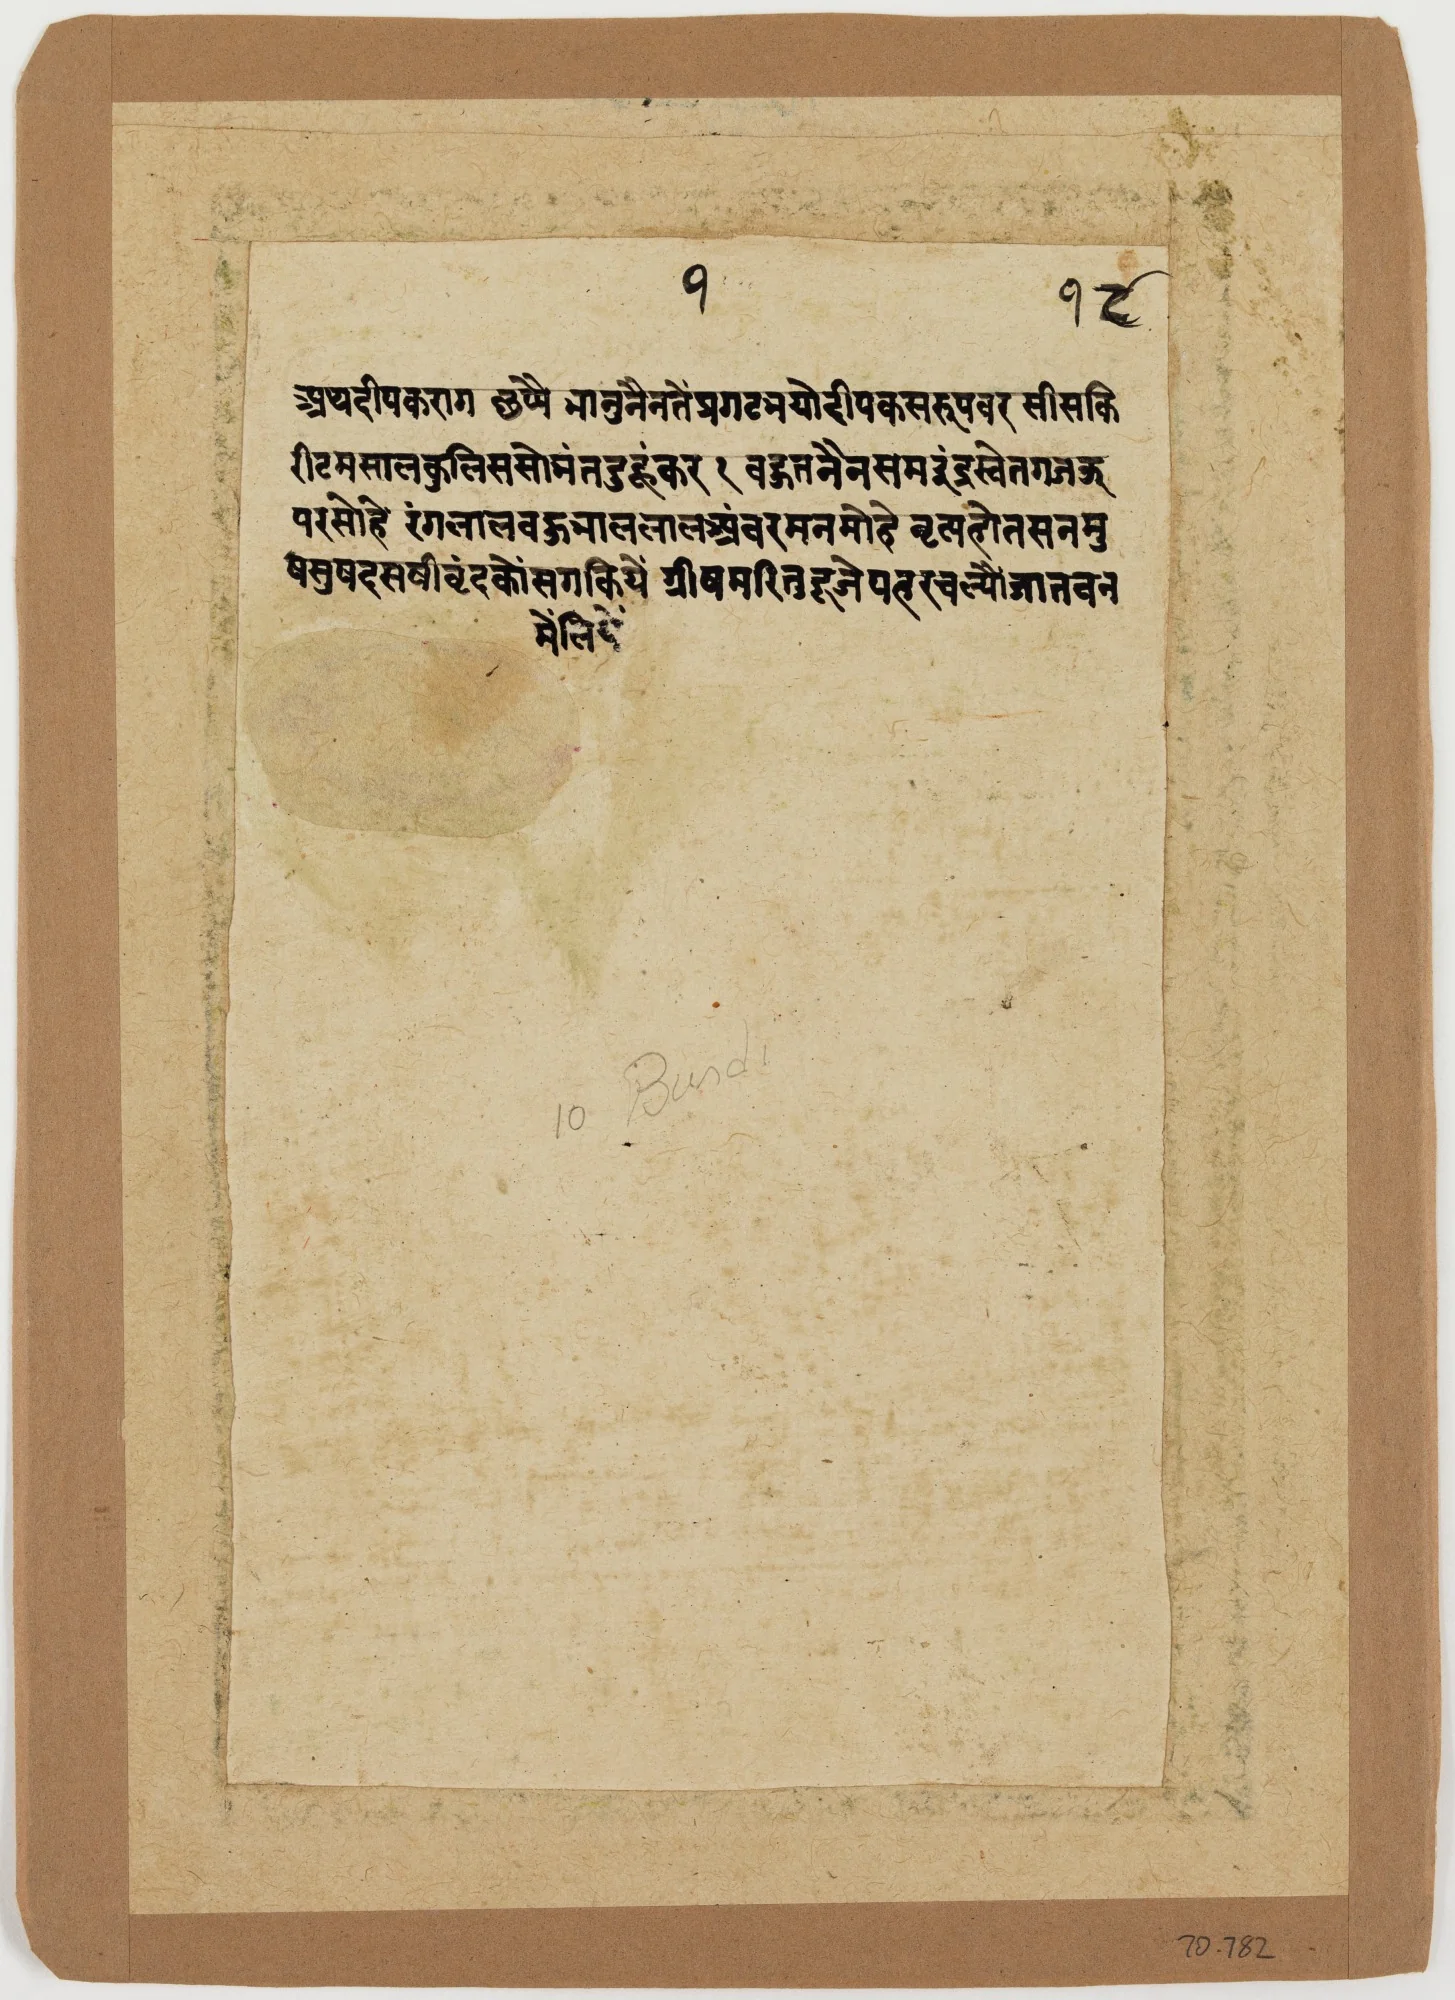 १
१८
अथदीपकराग छप्पै भानुनैनतेंप्रगटभयोदीपकसरूपवर सीसकि
रीटमसालकुलिससोभंतदुहूंकर १ बहुतनैनसमइंद्रस्वेतगजऊ
परसोहें रंगलालबहुभाललालअंबरमनमोहे नृत्यहोतसनमु
षसुषदसषीवृंदकोंसगकियें ग्रीषमरितुदूजेपहरचल्यौजातबन
मैंलियें
10 Bundi
70.782